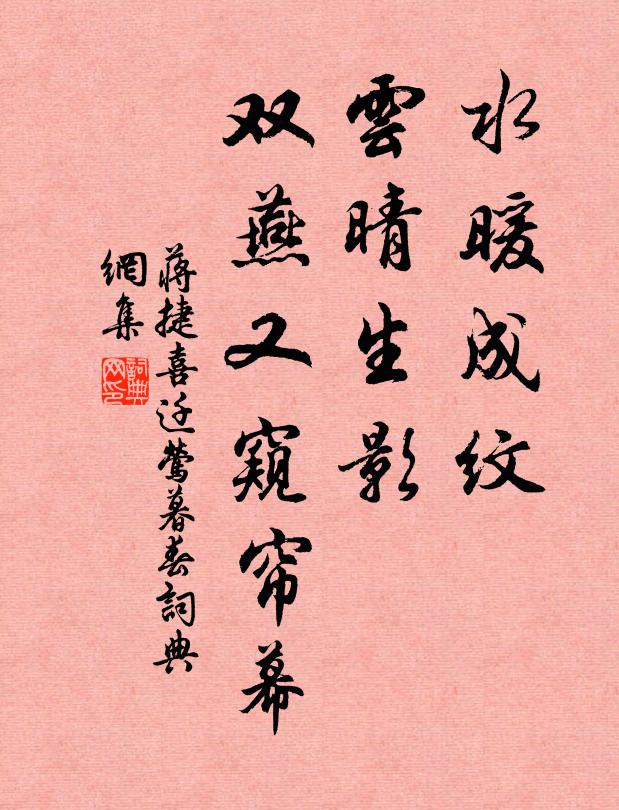 水暖成纹
雲晴生影
双燕又窥帘幕
蒋捷喜迁莺暮春詞典
網集
詞典
网印